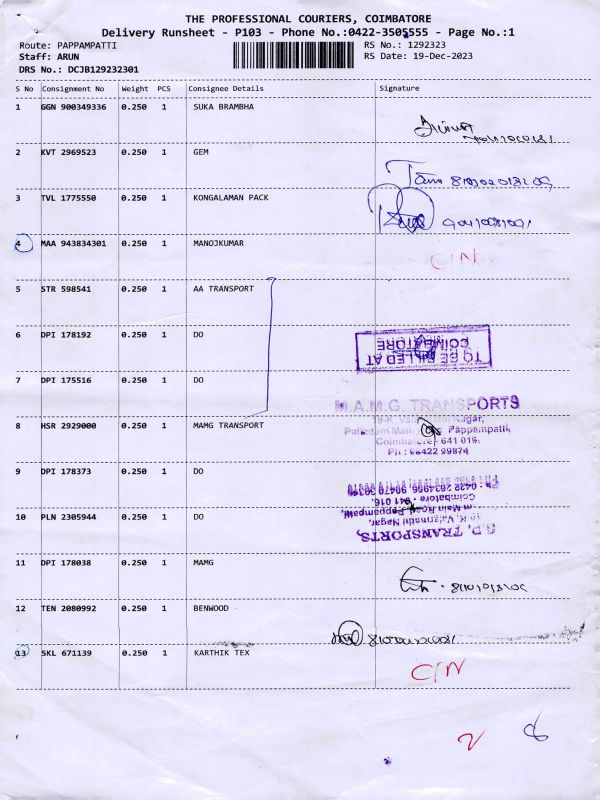 THE PROFESSIONAL COURIERS, COIMBATORE
Delivery Runsheet - P103 - Phone No.:0422-3505555 - Page No.:1
Route: PAPPAMPATTI
RS No.: 1292323
Staff: ARUN
RS Date: 19-Dec-2023
DRS No.: DCJB129232301
S No Consignment No Weight PCS Consignee Details Signature
1 GGN 900349336 0.250 1 SUKA BRAMBHA
2 KVT 2969523 0.250 1 GEM
3 TVL 1775550 0.250 1 KONGALAMAN PACK
4 MAA 943834301 0.250 1 MANOJKUMAR
C/N
5 STR 598541 0.250 1 AA TRANSPORT
6 DPI 178192 0.250 1 DO
TO BE BILLED AT
COIMBATORE
7 DPI 175516 0.250 1 DO
M.A.M.G. TRANSPORTS
Nagar,
Pappampatti,
Coimbatore - 641 016.
Ph : 98422 99874
8 HSR 2929000 0.250 1 MAMG TRANSPORT
9 DPI 178373 0.250 1 DO
10 PLN 2305944 0.250 1 DO
TRANSPORTS,
Nagar,
Main Road, Pappampatti,
Coimbatore - 641 016.
11 DPI 178038 0.250 1 MAMG
12 TEN 2080992 0.250 1 BENWOOD
13 SKL 671139 0.250 1 KARTHIK TEX
C/N
2 8